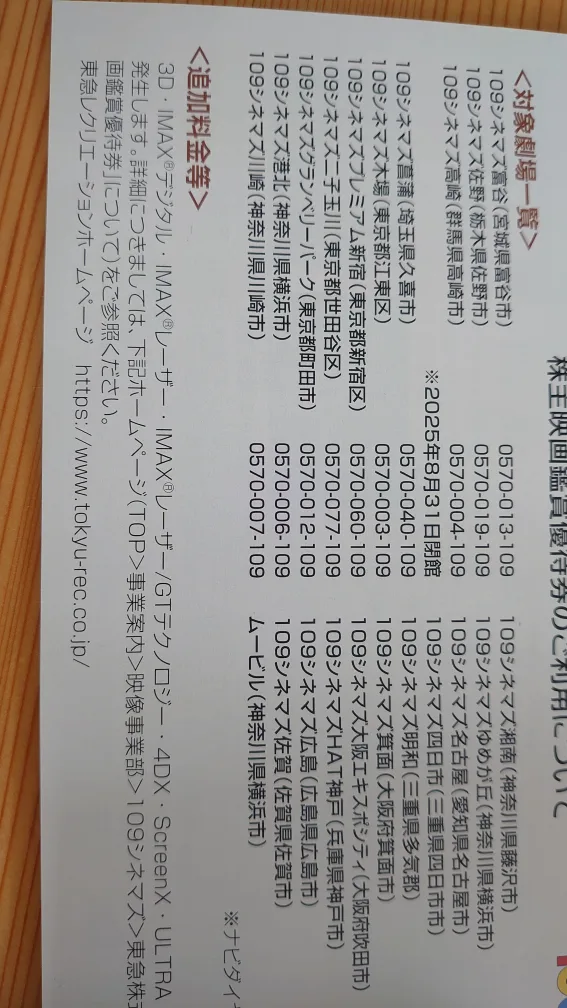 株主映画鑑賞優待券のご利用について
<対象劇場一覧>
109シネマズ富谷(宮城県富谷市) 0570-013-109
109シネマズ佐野(栃木県佐野市) 0570-019-109
109シネマズ高崎(群馬県高崎市) 0570-004-109
※2025年8月31日閉館
109シネマズ菖蒲(埼玉県久喜市) 0570-040-109
109シネマズ木場(東京都江東区) 0570-003-109
109シネマズプレミアム新宿(東京都新宿区) 0570-060-109
109シネマズ二子玉川(東京都世田谷区) 0570-077-109
109シネマズグランベリーパーク(東京都町田市) 0570-012-109
109シネマズ港北(神奈川県横浜市) 0570-006-109
109シネマズ川崎(神奈川県川崎市) 0570-007-109
109シネマズ湘南(神奈川県藤沢市)
109シネマズゆめが丘(神奈川県横浜市)
109シネマズ名古屋(愛知県名古屋市)
109シネマズ四日市(三重県四日市市)
109シネマズ明和(三重県多気郡)
109シネマズ箕面(大阪府箕面市)
109シネマズ大阪エキスポシティ(大阪府吹田市)
109シネマズHAT神戸(兵庫県神戸市)
109シネマズ広島(広島県広島市)
109シネマズ佐賀(佐賀県佐賀市)
ムービル(神奈川県横浜市)
※ナビダイ
<追加料金等>
3D・IMAX®デジタル・IMAX®レーザー・IMAX®レーザー/GTテクノロジー・4DX・ScreenX・ULTRA
発生します。詳細につきましては、下記ホームページ(TOP>事業案内>映像事業部>109シネマズ>東急株
画鑑賞優待券」について)をご参照ください。
東急レクリエーションホームページ https://www.tokyu-rec.co.jp/